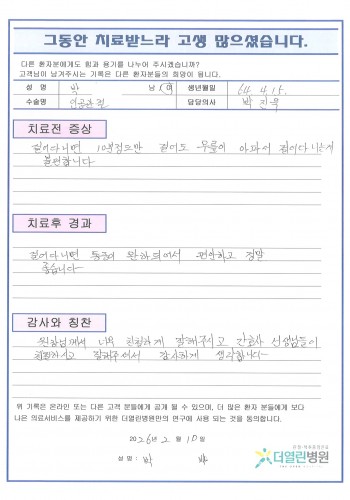 그동안 치료받느라 고생 많으셨습니다.
다른 환자분에게도 힘과 용기를 나누어 주시겠습니까?
고객님이 남겨주시는 기록은 다른 환자분들의 희망이 됩니다.
성 명 박 남 / 여 생년월일 64. 4. 15.
수술명 인공관절 담당의사 박진욱
치료전 증상
걸어다니면 10분정도만 걸어도 무릎이 아파서 걸어다니는게
불편합니다
치료후 경과
걸어다니면 통증이 완화되어서 편안하고 정말
좋습니다
감사와 칭찬
원장님께서 너무 친절하게 잘해주시고 간호사 선생님들이
친절하시고 잘해주셔서 감사하게 생각합니다
위 기록은 온라인 또는 다른 고객 분들에게 공개 될 수 있으며, 더 많은 환자 분들에게 보다
나은 의료서비스를 제공하기 위한 더열린병원만의 연구에 사용 되는 것을 동의합니다.
2026년 2월 10일
성 명 : 박
더열린병원